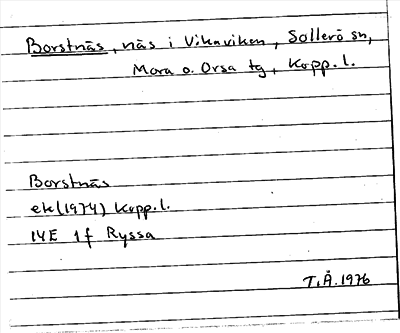 Borstnäs, näs i Vikaviken, Sollerö sn,
Mora o. Orsa tg, Kopp. l.
Borstnäs
ek (1974) Kopp. l.
14E 1f Ryssa
T.Å. 1976